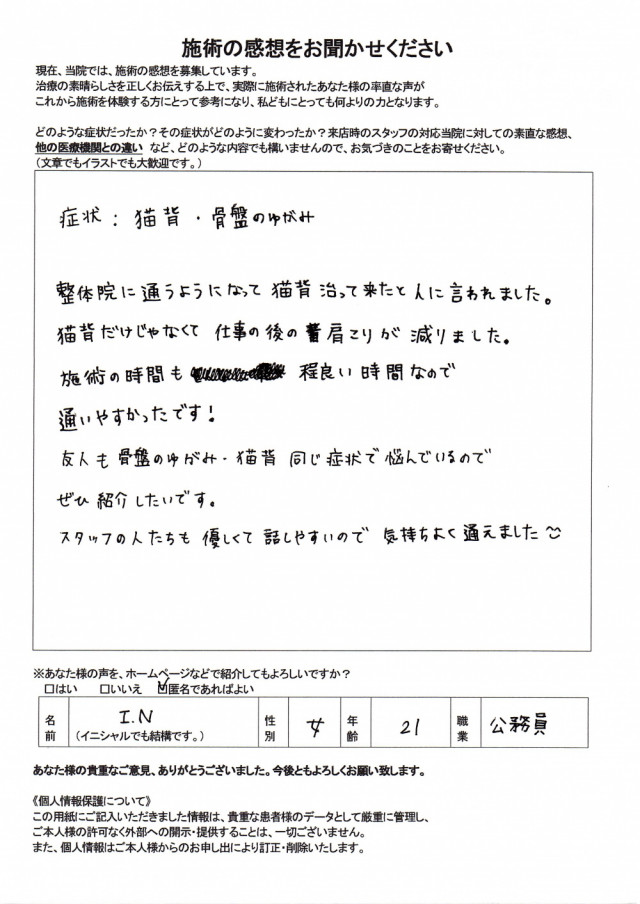 施術の感想をお聞かせください
現在、当院では、施術の感想を募集しています。
治療の素晴らしさを正しくお伝えする上で、実際に施術されたあなた様の率直な声が
これから施術を体験する方にとって参考になり、私どもにとっても何よりの力となります。
どのような症状だったか？その症状がどのように変わったか？来店時のスタッフの対応当院に対しての素直な感想、
他の医療機関との違い など、どのような内容でも構いませんので、お気づきのことをお寄せください。
（文章でもイラストでも大歓迎です。）
症状：猫背・骨盤のゆがみ
整体院に通うようになって猫背治って来たと人に言われました。
猫背だけじゃなくて 仕事の後の 肩こりが 減りました。
施術の時間も 程良い時間なので
通いやすかったです！
友人も骨盤のゆがみ・猫背 同じ症状で悩んでいるので
ぜひ紹介したいです。
スタッフの人たちも 優しくて 話しやすいので 気持ちよく通えました
※あなた様の声を、ホームページなどで紹介してもよろしいですか？
□はい □いいえ ☑匿名であればよい
名前 I.N （イニシャルでも結構です。） 性別 女 年齢 21 職業 公務員
あなた様の貴重なご意見、ありがとうございました。今後ともよろしくお願い致します。
《個人情報保護について》
この用紙にご記入いただきました情報は、貴重な患者様のデータとして厳重に管理し、
ご本人様の許可なく外部への開示・提供することは、一切ございません。
また、個人情報はご本人様からのお申し出により訂正・削除いたします。